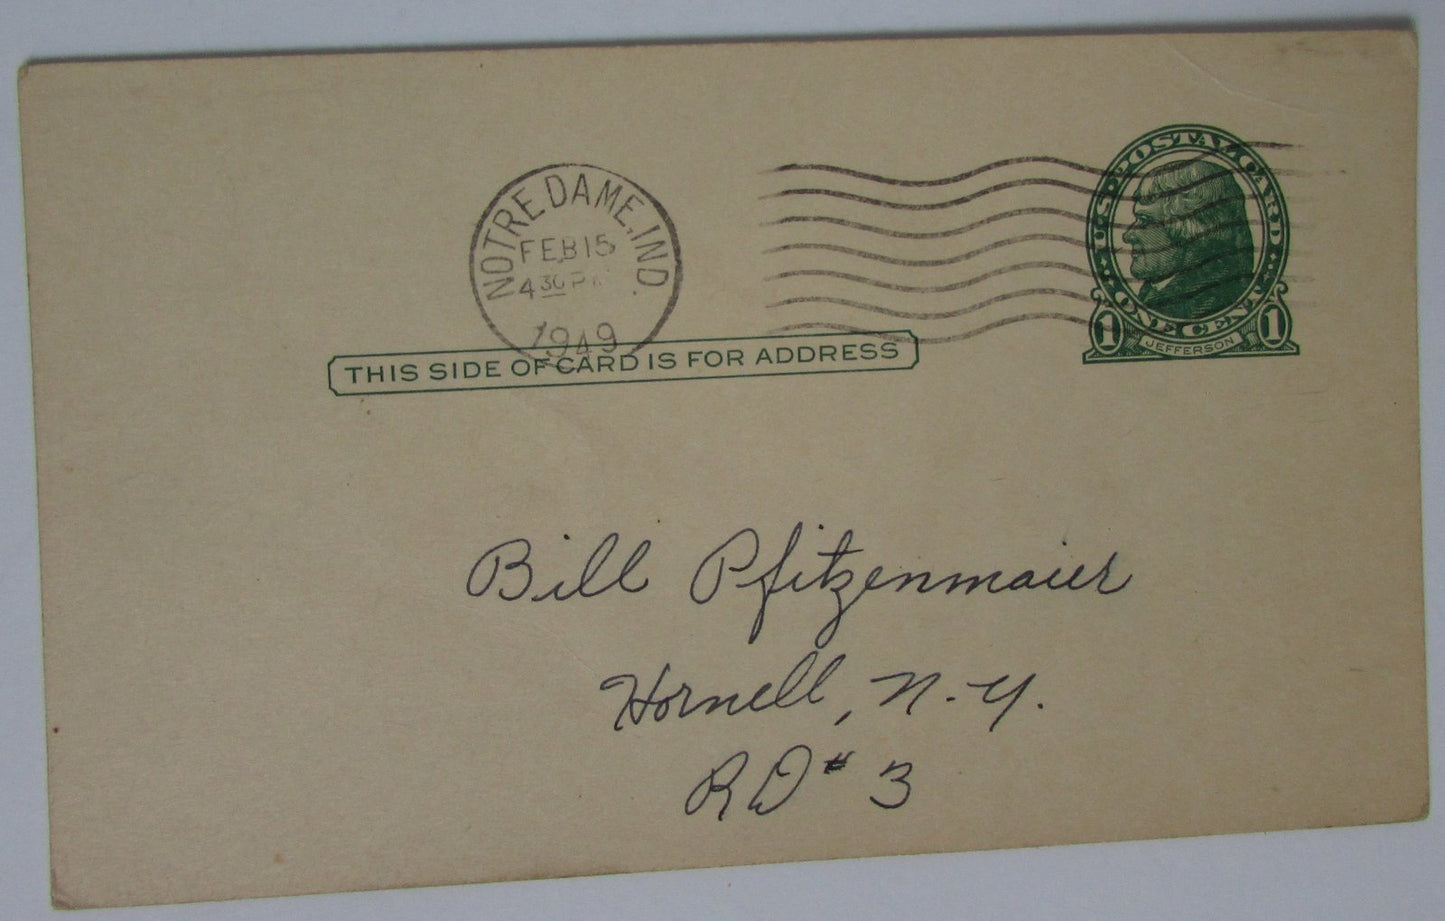 NOTRE DAME, IND.
FEB 15
4 30 PM
1949
U.S. POSTAL CARD
ONE CENT
1 JEFFERSON 1
THIS SIDE OF CARD IS FOR ADDRESS
Bill Pfitzenmaier
Hornell, N.Y.
RD # 3